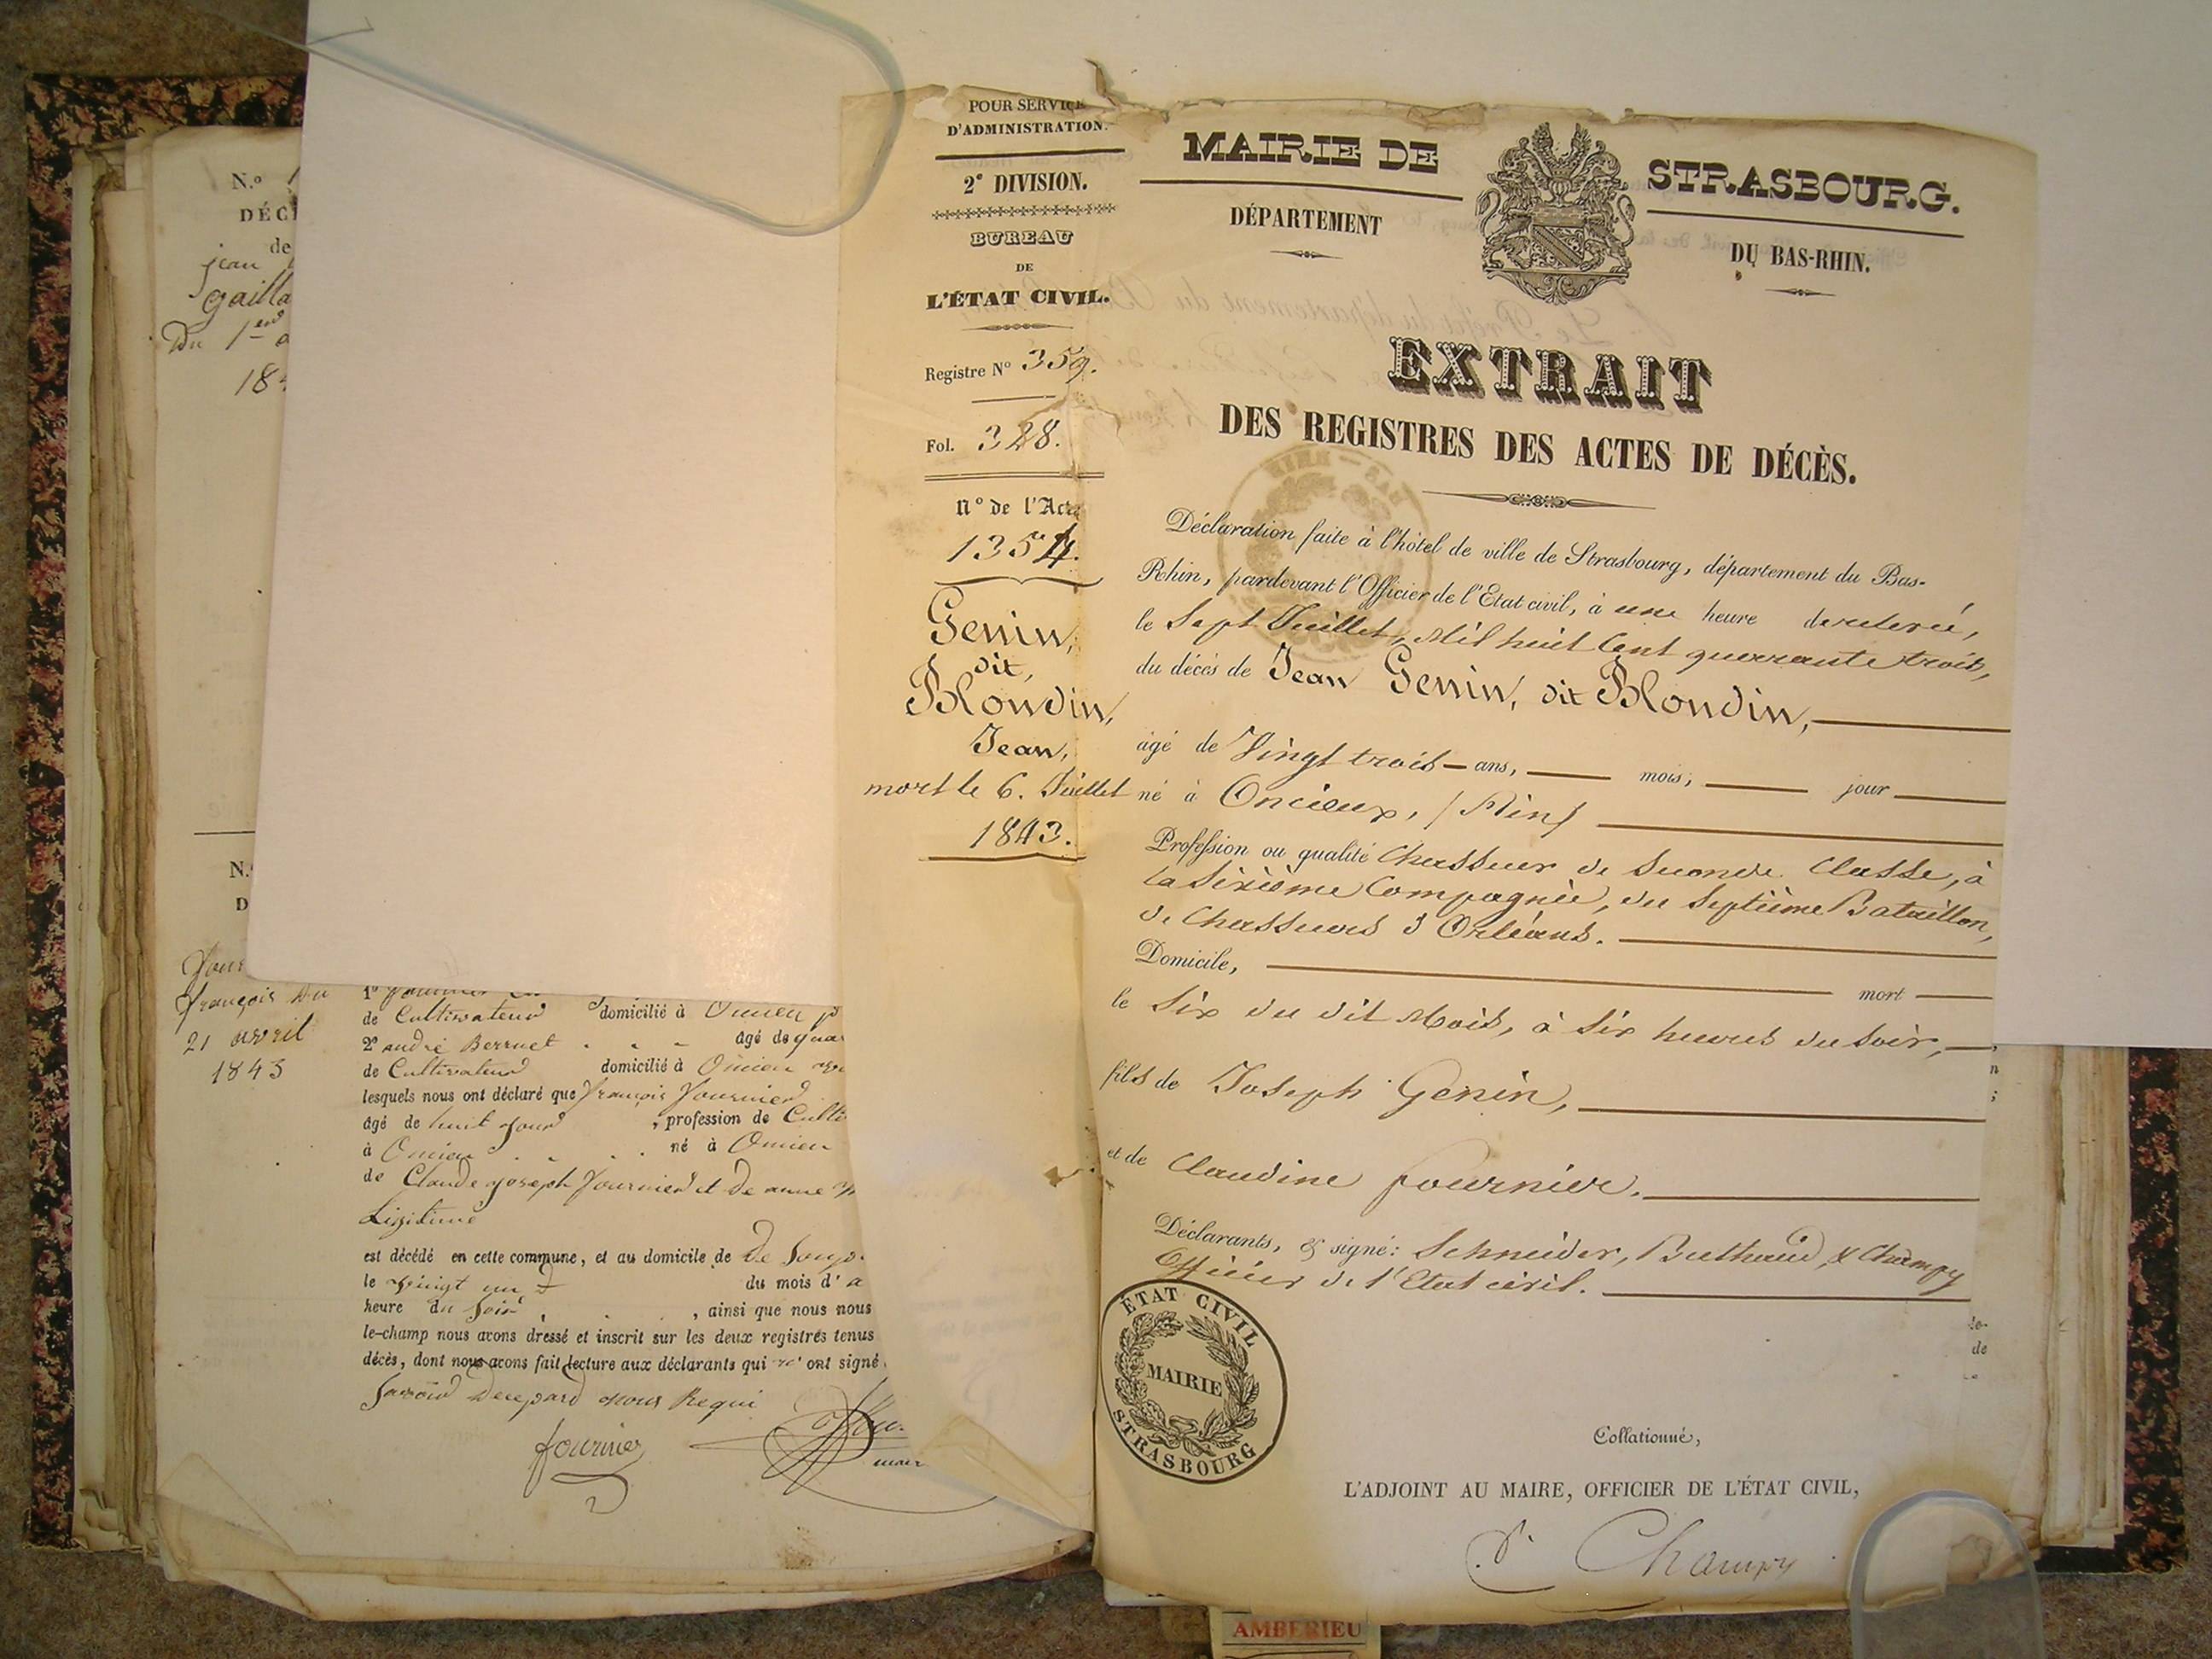 N.º 1
DÉC
de
jean
gailla
Du 1er a
18
N.
D
Four
françois Du
21 avril
1843
de Cultivateur domicilié à Oncieu
2º andré Berruet âgé de qua
de Cultivateur domicilié à Oncieu
lesquels nous ont déclaré que françois fournier
âgé de huit jour , profession de Culti
à Oncieu né à Oncieu
de Claude joseph fournier et de anne
Ligitime
est décédé en cette commune, et au domicile de
le vingt un du mois d' a
heure du soir , ainsi que nous nous
le-champ nous avons dressé et inscrit sur les deux registres tenus
décès, dont nous avons fait lecture aux déclarants qui n' ont signé
nous Requi
fournier
maire
POUR SERVICE
D'ADMINISTRATION.
2e DIVISION.
BUREAU
DE
L'ÉTAT CIVIL.
Registre Nº 359.
Fol. 328.
Nº de l'Acte
1354.
Genin,
dit,
Blondin,
Jean,
mort le 6. Juillet
1843.
MAIRIE DE STRASBOURG.
DÉPARTEMENT DU BAS-RHIN.
EXTRAIT
DES REGISTRES DES ACTES DE DÉCÈS.
Déclaration faite à l'hôtel de ville de Strasbourg, département du Bas-
Rhin, pardevant l'Officier de l'Etat civil, à une heure de relevé,
le Sept Juillet, Mil huit Cent quarante trois,
du décès de Jean Genin, dit Blondin,
âgé de Vingt trois ans, mois, jour
né à Oncieux, (Ain)
Profession ou qualité Chasseur de Seconde Classe, à
la Sixième Compagnie, du Septième Bataillon,
de Chasseurs d'Orléans.
Domicile, mort
le Six du dit Mois, à Six heures du Soir,
fils de Joseph Genin,
et de Claudine fournier.
Déclarants, & signé: Schneider, Buthaud, & Champy
Officier de l'Etat civil.
ÉTAT CIVIL
MAIRIE
STRASBOURG
Collationné,
L'ADJOINT AU MAIRE, OFFICIER DE L'ÉTAT CIVIL,
Champy
AMBERIEU